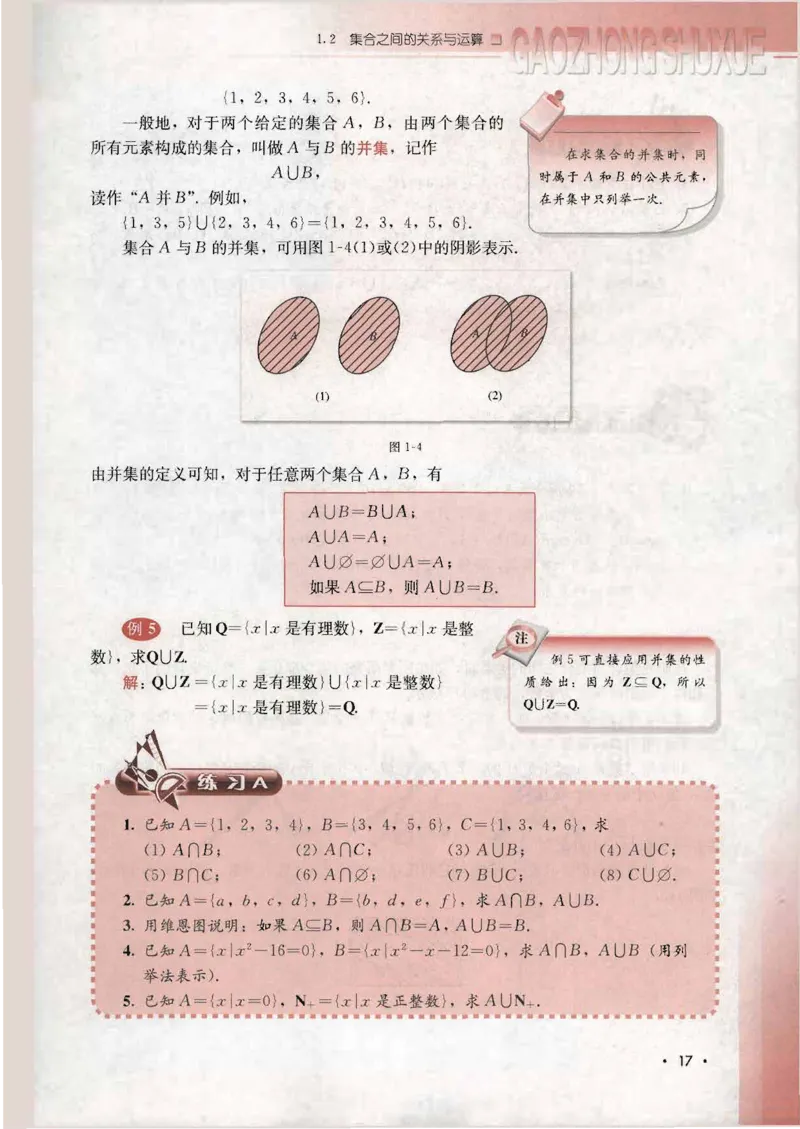 1.2 集合之间的关系与运算
GAOZHONGSHUXUE
{1, 2, 3, 4, 5, 6}.
一般地，对于两个给定的集合 A，B，由两个集合的
所有元素构成的集合，叫做 A 与 B 的并集，记作
A∪B，
读作“A 并 B”. 例如，
{1, 3, 5}∪{2, 3, 4, 6}={1, 2, 3, 4, 5, 6}.
集合 A 与 B 的并集，可用图 1-4(1)或(2)中的阴影表示.
在求集合的并集时，同
时属于 A 和 B 的公共元素，
在并集中只列举一次.
A B A B
(1) (2)
图 1-4
由并集的定义可知，对于任意两个集合 A，B，有
A∪B=B∪A；
A∪A=A；
A∪∅=∅∪A=A；
如果 A⊆B，则 A∪B=B.
例 5 已知 Q={x|x 是有理数}，Z={x|x 是整
数}，求Q∪Z.
解：Q∪Z={x|x 是有理数}∪{x|x 是整数}
={x|x 是有理数}=Q.
注
例 5 可直接应用并集的性
质给出：因为 Z⊆Q，所以
Q∪Z=Q.
练习A
1. 已知 A={1, 2, 3, 4}，B={3, 4, 5, 6}，C={1, 3, 4, 6}，求
(1) A∩B； (2) A∩C； (3) A∪B； (4) A∪C；
(5) B∩C； (6) A∩∅； (7) B∪C； (8) C∪∅.
2. 已知 A={a, b, c, d}，B={b, d, e, f}，求 A∩B，A∪B.
3. 用维恩图说明：如果 A⊆B，则 A∩B=A，A∪B=B.
4. 已知 A={x|x²-16=0}，B={x|x²-x-12=0}，求 A∩B，A∪B（用列
举法表示）.
5. 已知 A={x|x=0}，N₊={x|x 是正整数}，求 A∪N₊.
• 17 •